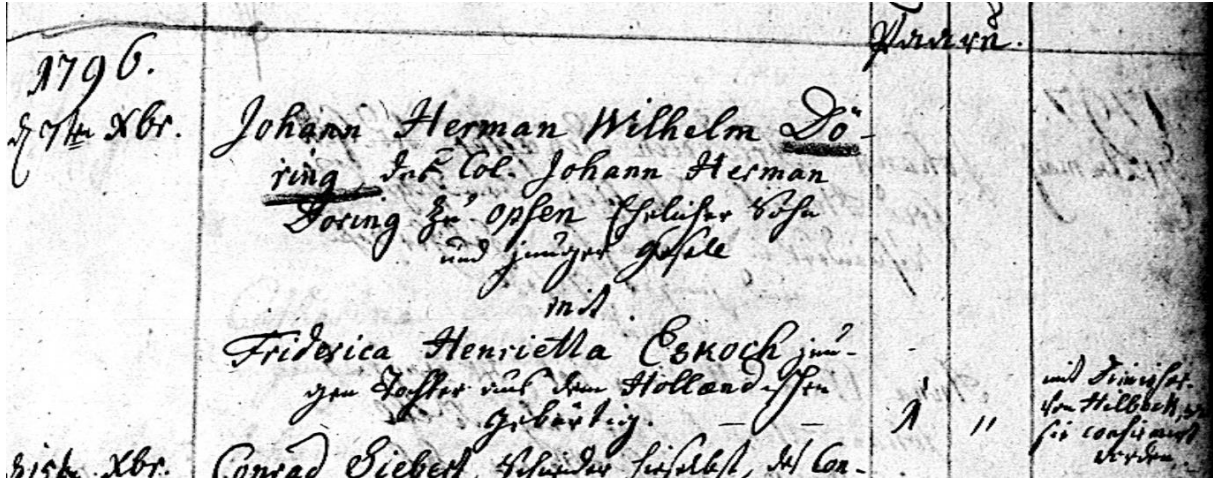 Paaren.
1796.
d 7ten Xbr.
Johann Herman Wilhelm Dö-
ring, des Col. Johann Herman
Doring zu Opsen Ehelicher Sohn
und junger Gesell
mit
Friderica Henrietta Eskoch jun-
gen Tochter aus dem Hollandischen
gebürtig. — —
1 "
mit
von
sie confirmirt
worden.
Xbr. Conrad Siebert, Schneider hieselbst, des Con-